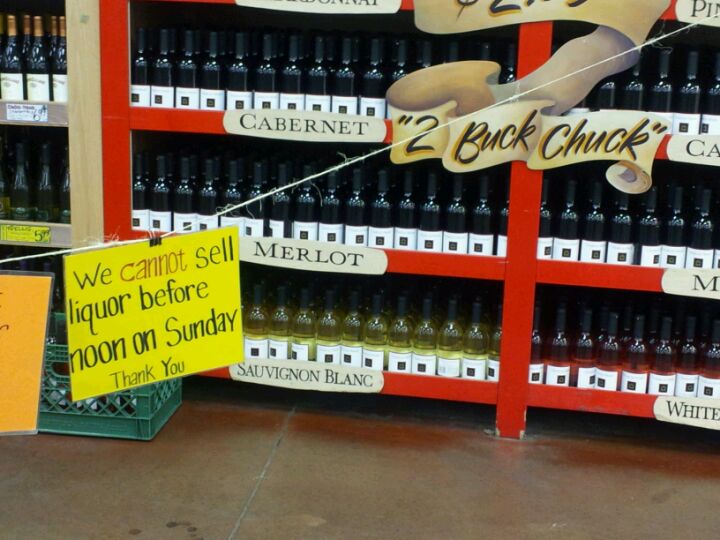 CHARDONNAY
$2.
PIN
CABERNET
"2 Buck Chuck"
CA
MERLOT
M
We cannot sell
liquor before
noon on Sunday
Thank You
SAUVIGNON BLANC
WHITE